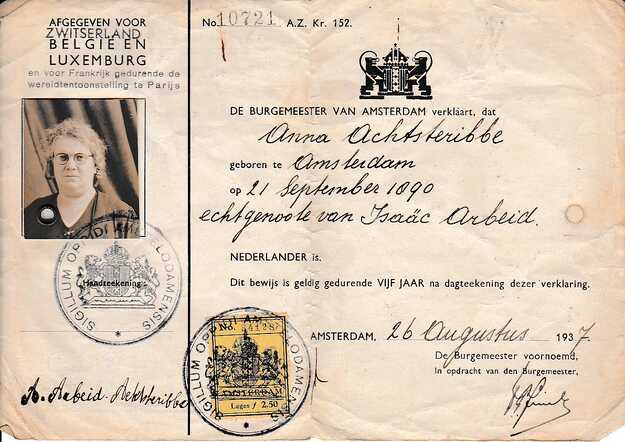 AFGEGEVEN VOOR
ZWITSERLAND
BELGIE EN
LUXEMBURG
en voor Frankrijk gedurende de
wereldtentoonstelling te Parijs
Handteekening:
SIGILLUM OPPIDI AMSTELODAMENSIS
A. Arbeid-Achtsteribbe
No. 10721 A.Z. Kr. 152.
DE BURGEMEESTER VAN AMSTERDAM verklaart, dat
Anna Achtsteribbe
geboren te Amsterdam
op 21 September 1890
echtgenoote van Isaäc Arbeid.
NEDERLANDER is.
Dit bewijs is geldig gedurende VIJF JAAR na dagteekening dezer verklaring.
SIGILLUM OPPIDI AMSTELODAMENSIS
No.
AMSTERDAM
Leges f 2.50
AMSTERDAM, 26 Augustus 1937
De Burgemeester voornoemd,
In opdracht van den Burgemeester,